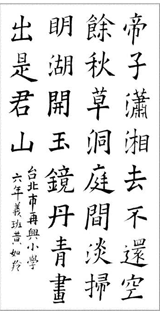 帝子瀟湘去不還空
餘秋草洞庭間淡掃
明湖開玉鏡丹青畫
出是君山
台北市再興小學
六年義班黃如玲